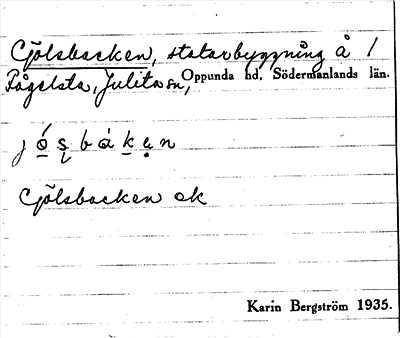 Gjölsbacken, statarbyggning å 1
Fågelsta, Julita sn, Oppunda hd, Södermanlands län.
j ó s b á k ę n
Gjölsbacken ek
Karin Bergström 1935.